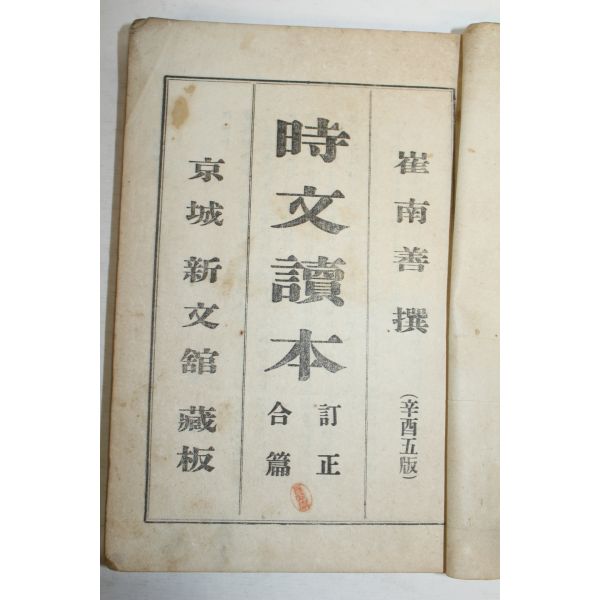 崔南善 撰
(辛酉五版)
時文讀本
訂正
合篇
京城 新文館 藏板